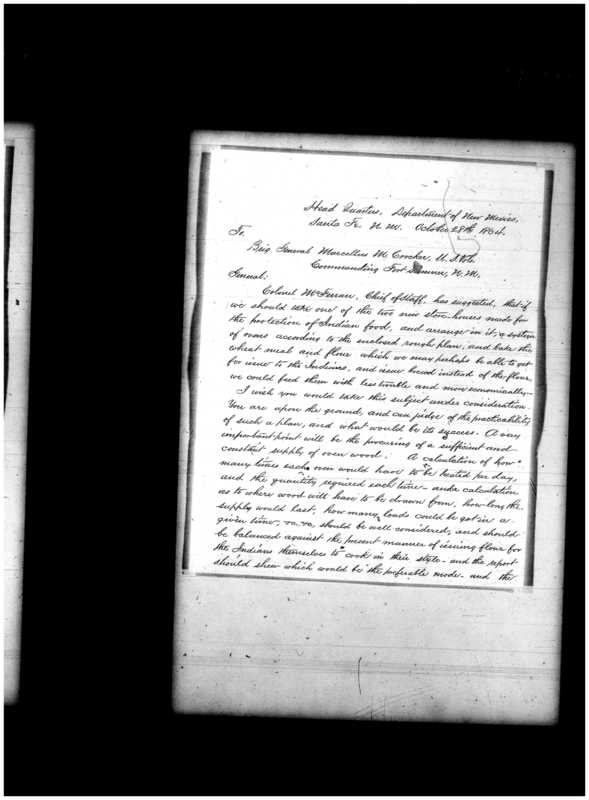 Head Quarters, Department of New Mexico,
Santa Fe, N. M. October 28th 1864.
To,
Brig General Marcellus M Crocker, U. S. Vols.
Commanding Fort Sumner, N. M.
General;
Colonel McFerran, Chief of Staff, has suggested, that if
we should take one of the two new store-houses made for
the protection of Indian food, and arrange in it, a system
of ovens according to the enclosed rough plan; and bake the
wheat meal and flour which we may perhaps be able to get
for issue to the Indians, and issue bread instead of the flour,
we could feed them with less trouble and more economically.
I wish you would take this subject under consideration.
You are upon the ground, and can judge of the practicability
of such a plan, and what would be its success. A very
important point will be the procuring of a sufficient and
constant supply of oven wood: A calculation of how
many times each oven would have to be heated per day,
and the quantity required each time - and a calculation
as to where wood will have to be drawn from, how long the
supply would last, how many loads could be got in a
given time, &c. &c, should be well considered; and should
be balanced against the present manner of issuing flour for
the Indians themselves to cook in their style - and the report
should shew which would be the preferable mode - and the